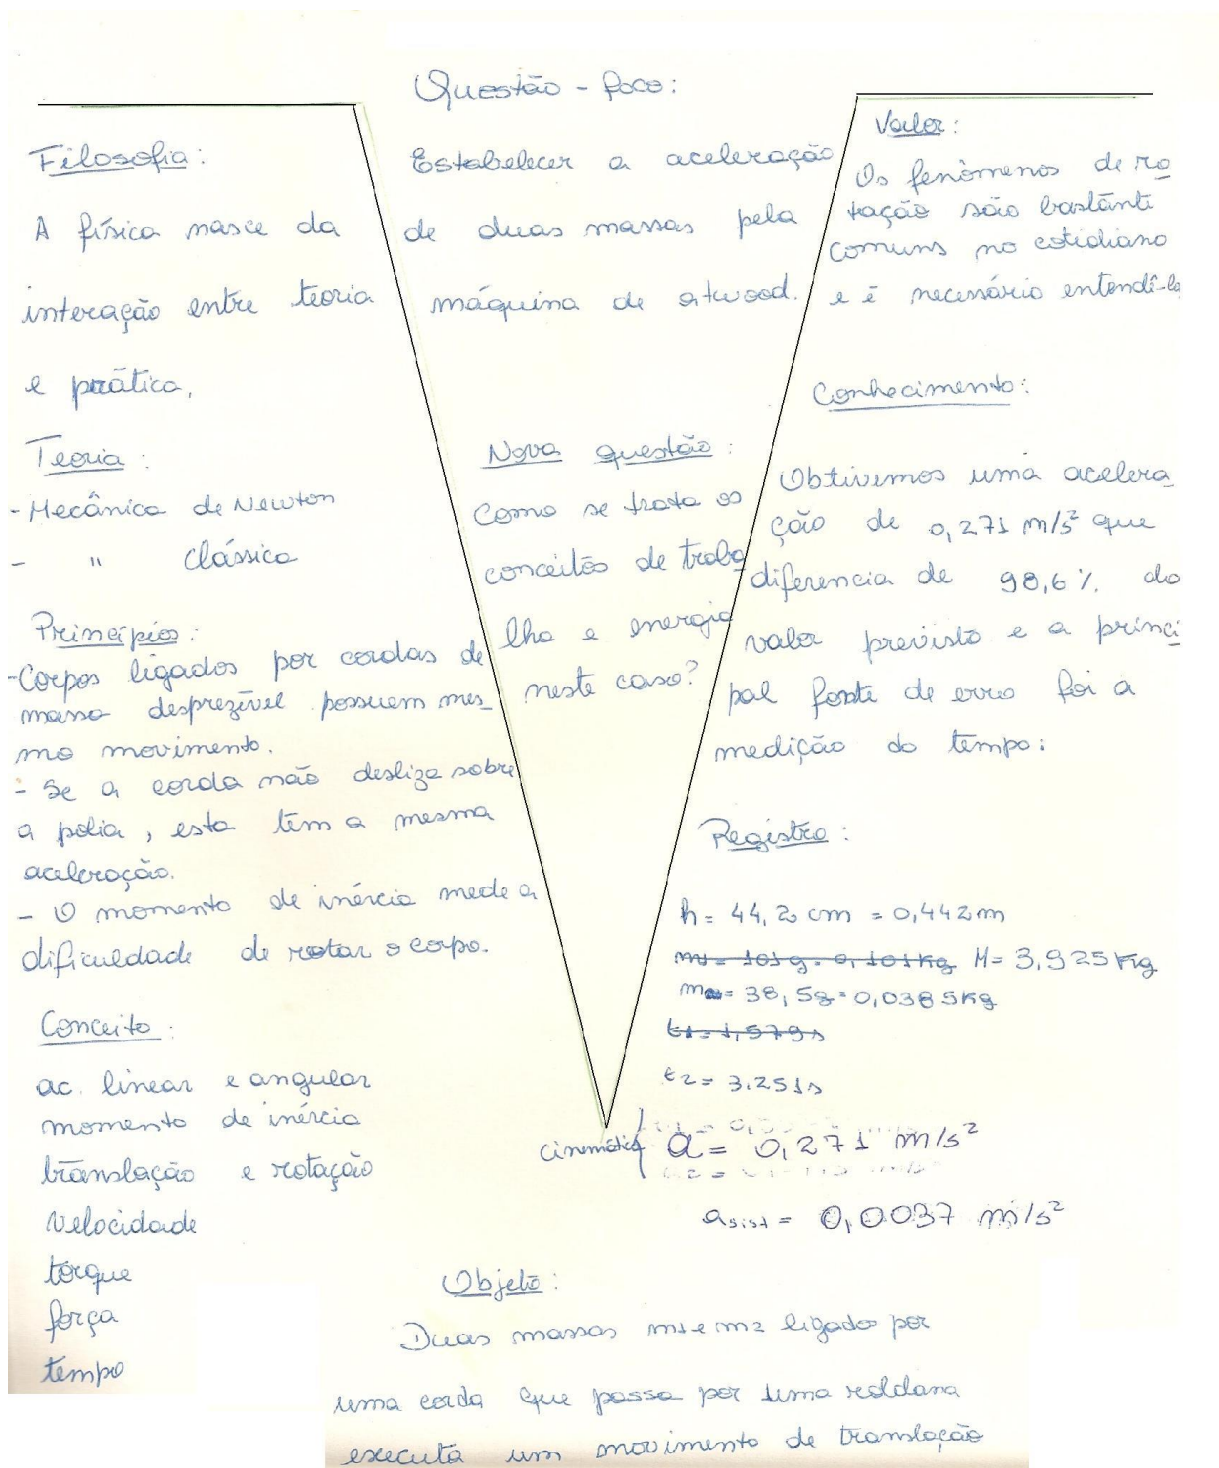 Questão - foco:
Estabelecer a aceleração
de duas massas pela
máquina de atwood.
Filosofia:
A física nasce da
interação entre teoria
e prática.
Teoria:
- Mecânica de Newton
- " clássica
Princípios:
- Corpos ligados por cordas de
massa desprezível possuem mes_
mo movimento.
- Se a corda não desliza sobre
a polia, esta tem a mesma
aceleração.
- O momento de inércia mede a
dificuldade de rotar o corpo.
Conceito:
ac. linear e angular
momento de inércia
translação e rotação
velocidade
torque
força
tempo
Nova questão:
Como se trata os
conceitos de traba
lho e energia
neste caso?
Valor:
Os fenômenos de ro
tação são bastante
comuns no cotidiano
e é necessário entendê-lo
Conhecimento:
Obtivemos uma acelera
ção de 0,271 m/s² que
diferencia de 98,6%. do
valor previsto e a princi
pal fonte de erro foi a
medição do tempo:
Registro:
h= 44,2 cm = 0,442m
m1= 101g= 0,101Kg M= 3,925Kg
m= 38,5g=0,0385Kg
t1= 1,579s
t2= 3.251s
cinemática a= 0,271 m/s²
asist = 0,0037 m/s²
Objeto:
Duas massas m1 e m2 ligado por
uma corda que passa por uma roldana
executa um movimento de translação